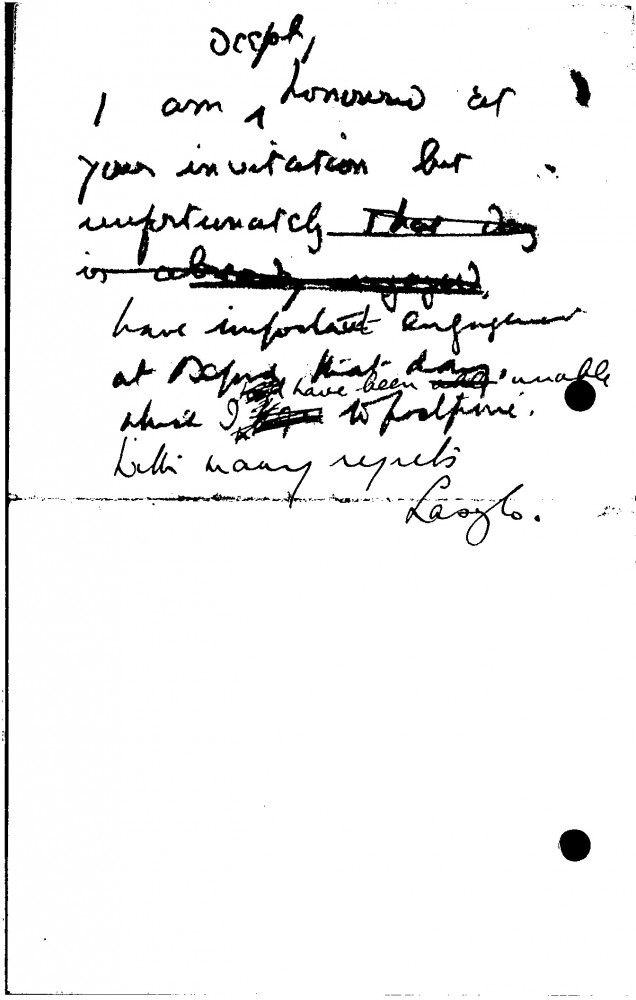 deeply
I am ‸ honoured at
your invitation but
unfortunately that day
is already engaged.
have important engagement
at Oxford that day,
have been unable
which I to postpone.
With many regrets
Laszlo.